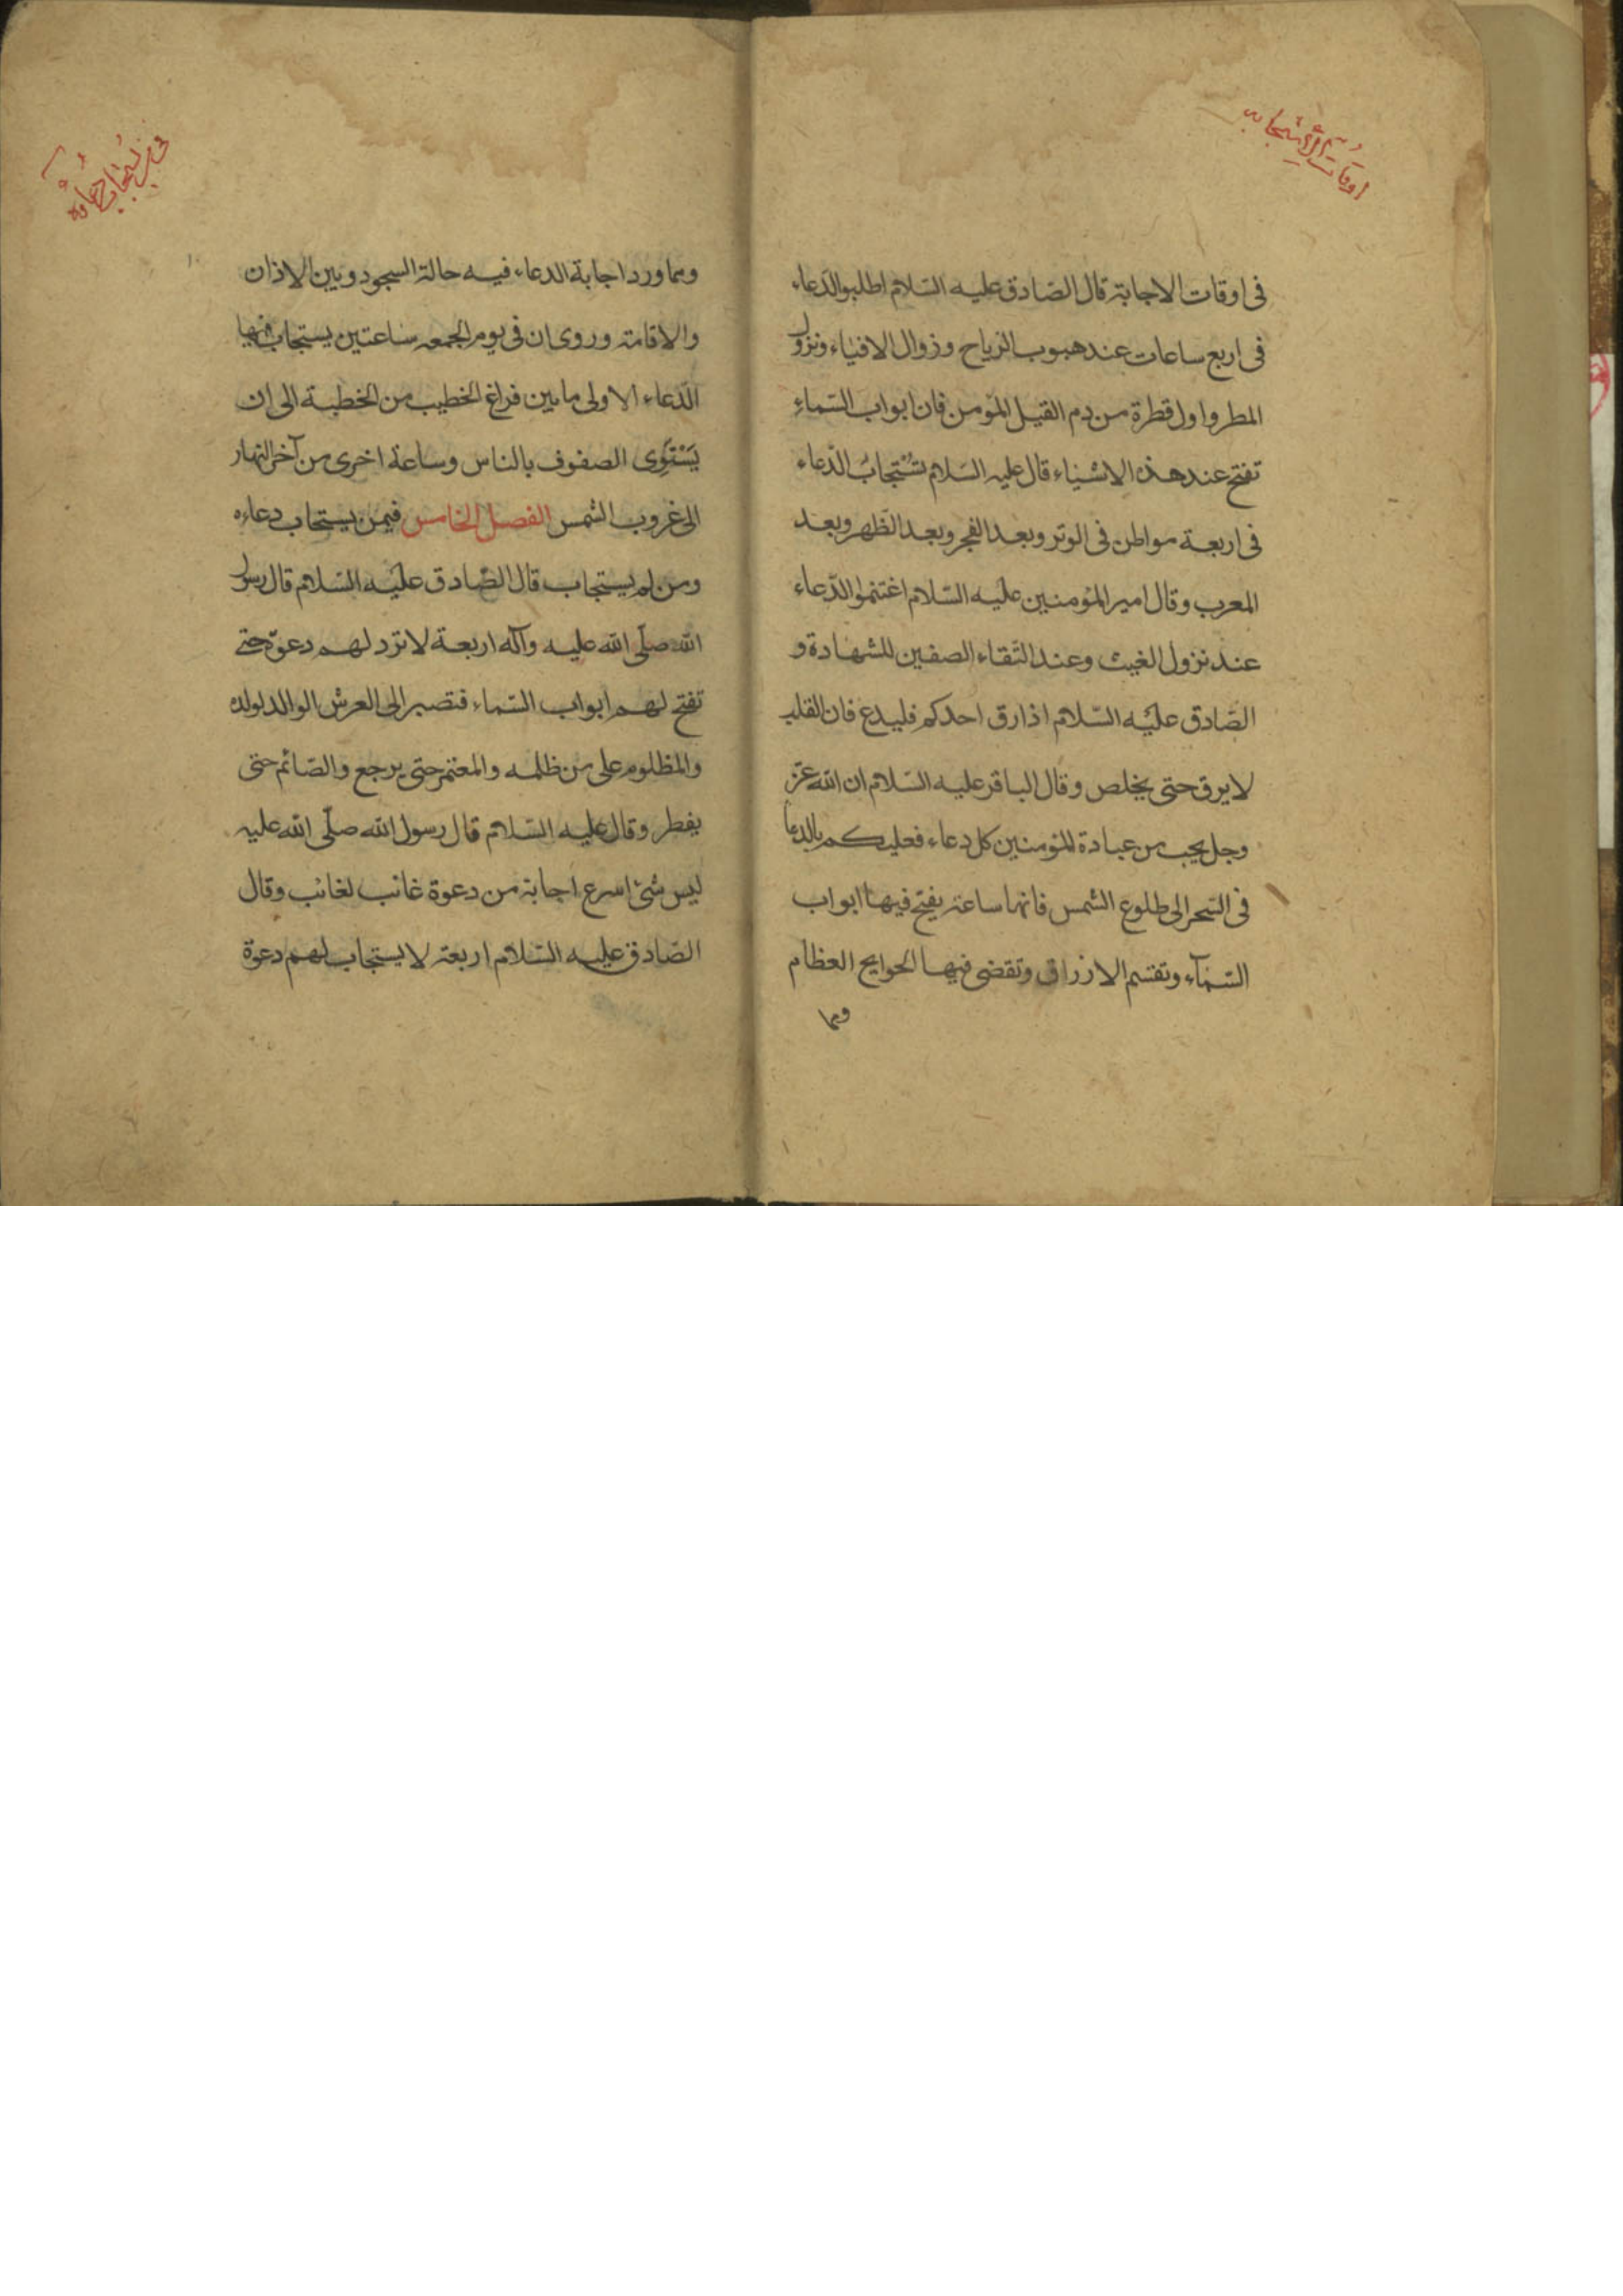 اوقات الاستجابه
فى اوقات الاجابة قال الصّادق عليه السّلام اطلبوا الدّعاء
فى اربع ساعات عند هبوب الرّياح وزوال الافياء ونزول
المطر واول قطرة من دم القيل المؤمن فان ابواب السّماء
تفتح عند هذه الاشياء قال عليه السّلام تُسْتجابُ الدّعاء
فى اربعة مواطن فى الوتر وبعد الفجر وبعد الظهر وبعد
المعرب وقال امير المؤمنين عليه السّلام اغتنموا الدّعاء
عند نزول الغيث وعند التقاء الصفين للشهادة و
الصّادق عليه السّلام اذا رق احدكم فليدع فان القلب
لا يرق حتى يخلص وقال الباقر عليه السّلام ان الله عزّ
وجل يحب من عبادة المؤمنين كل دعاء فعليكم بالدعا
فى السّحر الى طلوع الشمس فانها ساعة يفتح فيها ابواب
السّمآء وتقسم الارزاق وتقضى فيها الحوايج العظام
ومما
فى من يُستجاب دُعاؤه
ومما ورد اجابة الدعاء فيه حالة السجود وبين الاذان
والاقامة وروى ان فى يوم الجمعه ساعتين يستجاب فيها
الدّعاء الاولى ما بين فراغ الخطيب من الخطبة الى ان
يَسْتَوِى الصفوف بالناس وساعة اخرى من آخر النهار
الى غروب الشمس الفصل الخامس فيمن يستجاب دعاءه
ومن لم يستجاب قال الصّادق عليه السّلام قال رسول
الله صلّى الله عليه وآله اربعة لا ترد لهم دعوة حتى
تفتح لهم ابواب السّماء فتصير الى العرش الوالد لولده
والمظلوم على من ظلمه والمعتمر حتى يرجع والصّائم حتى
يفطر وقال عليه السّلام قال رسول الله صلّى الله عليه
ليس شئ اسرع اجابة من دعوة غائب لغائب وقال
الصّادق عليه السّلام اربعة لا يستجاب لهم دعوة